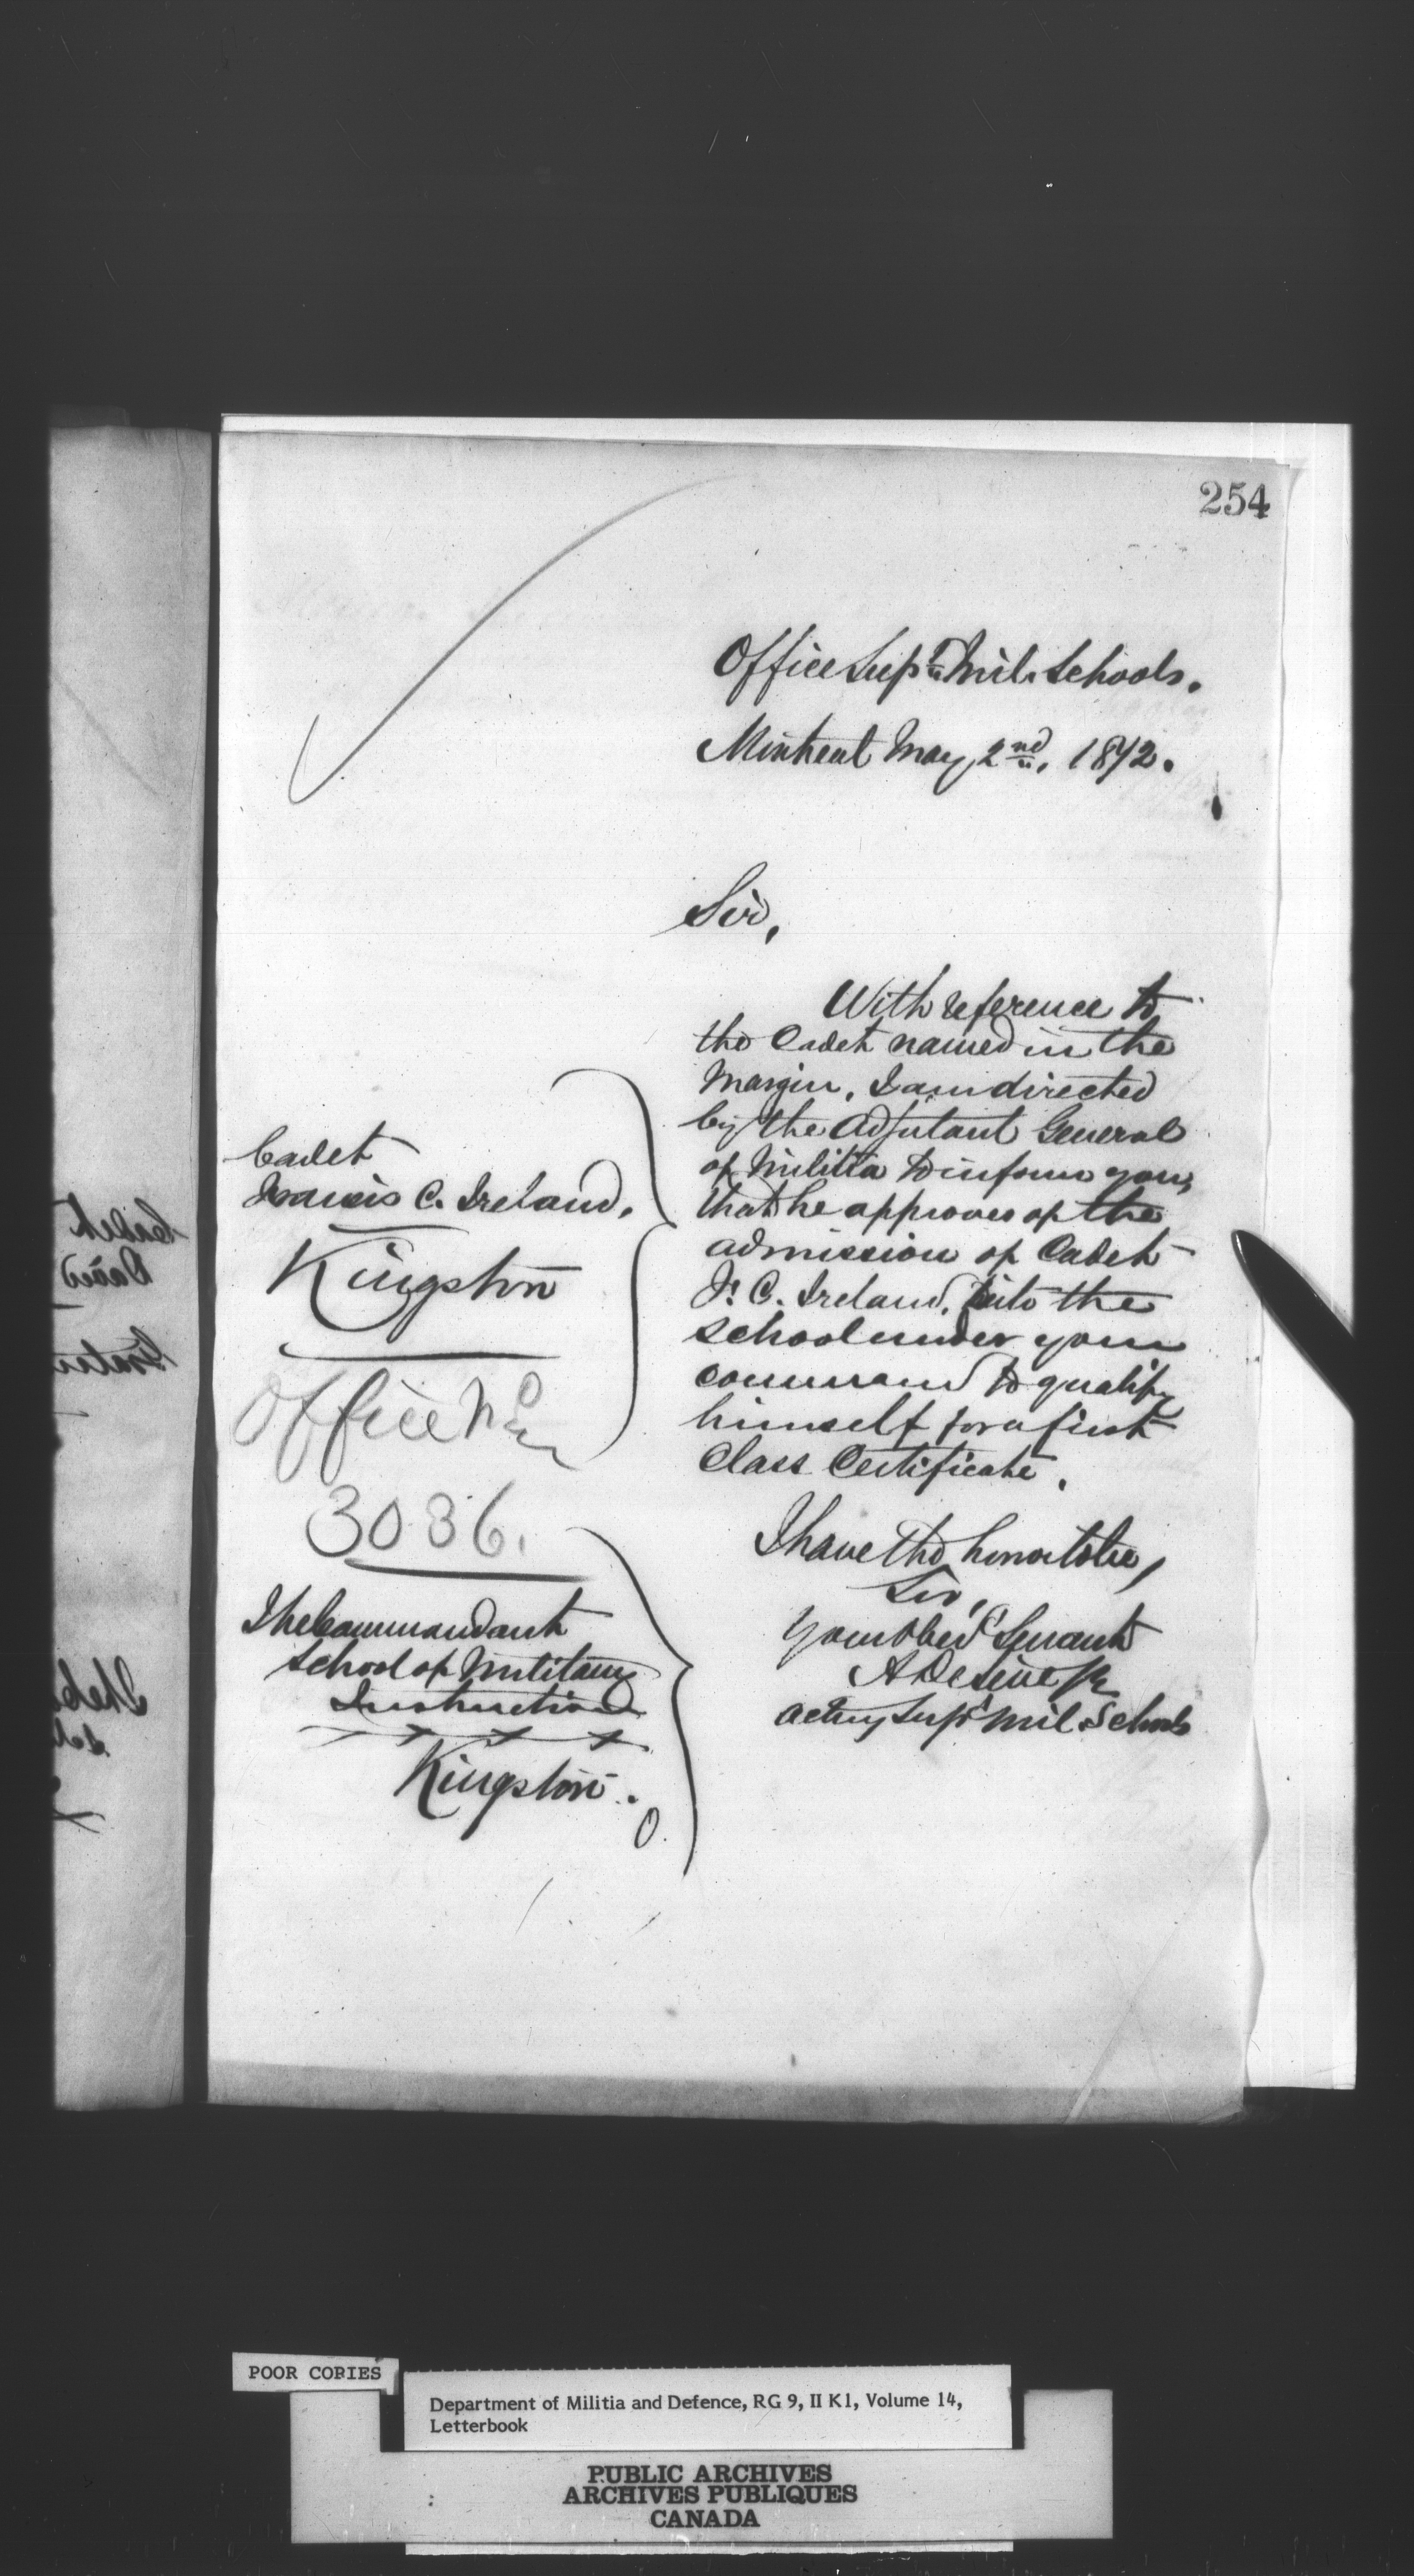 254
Office Supt. Mil. Schools.
Montreal May 2nd, 1872.
Sir,
With reference to
the Cadet named in the
Margin, I am directed
by the Adjutant General
of Militia to inform you,
that he approves of the
admission of Cadet
F. C. Ireland, into the
School under your
command to qualify
himself for a first
Class Certificate.
I have the honor to be,
Sir,
Your Obed Servant
acting Supt Mil Schools
Cadet
Francis C. Ireland.
Kingston
Office No
3036.
The Commandant
School of Military
Instruction
Kingston.
O.
POOR COPIES
Department of Militia and Defence, RG 9, II K1, Volume 14,
Letterbook
PUBLIC ARCHIVES
ARCHIVES PUBLIQUES
CANADA